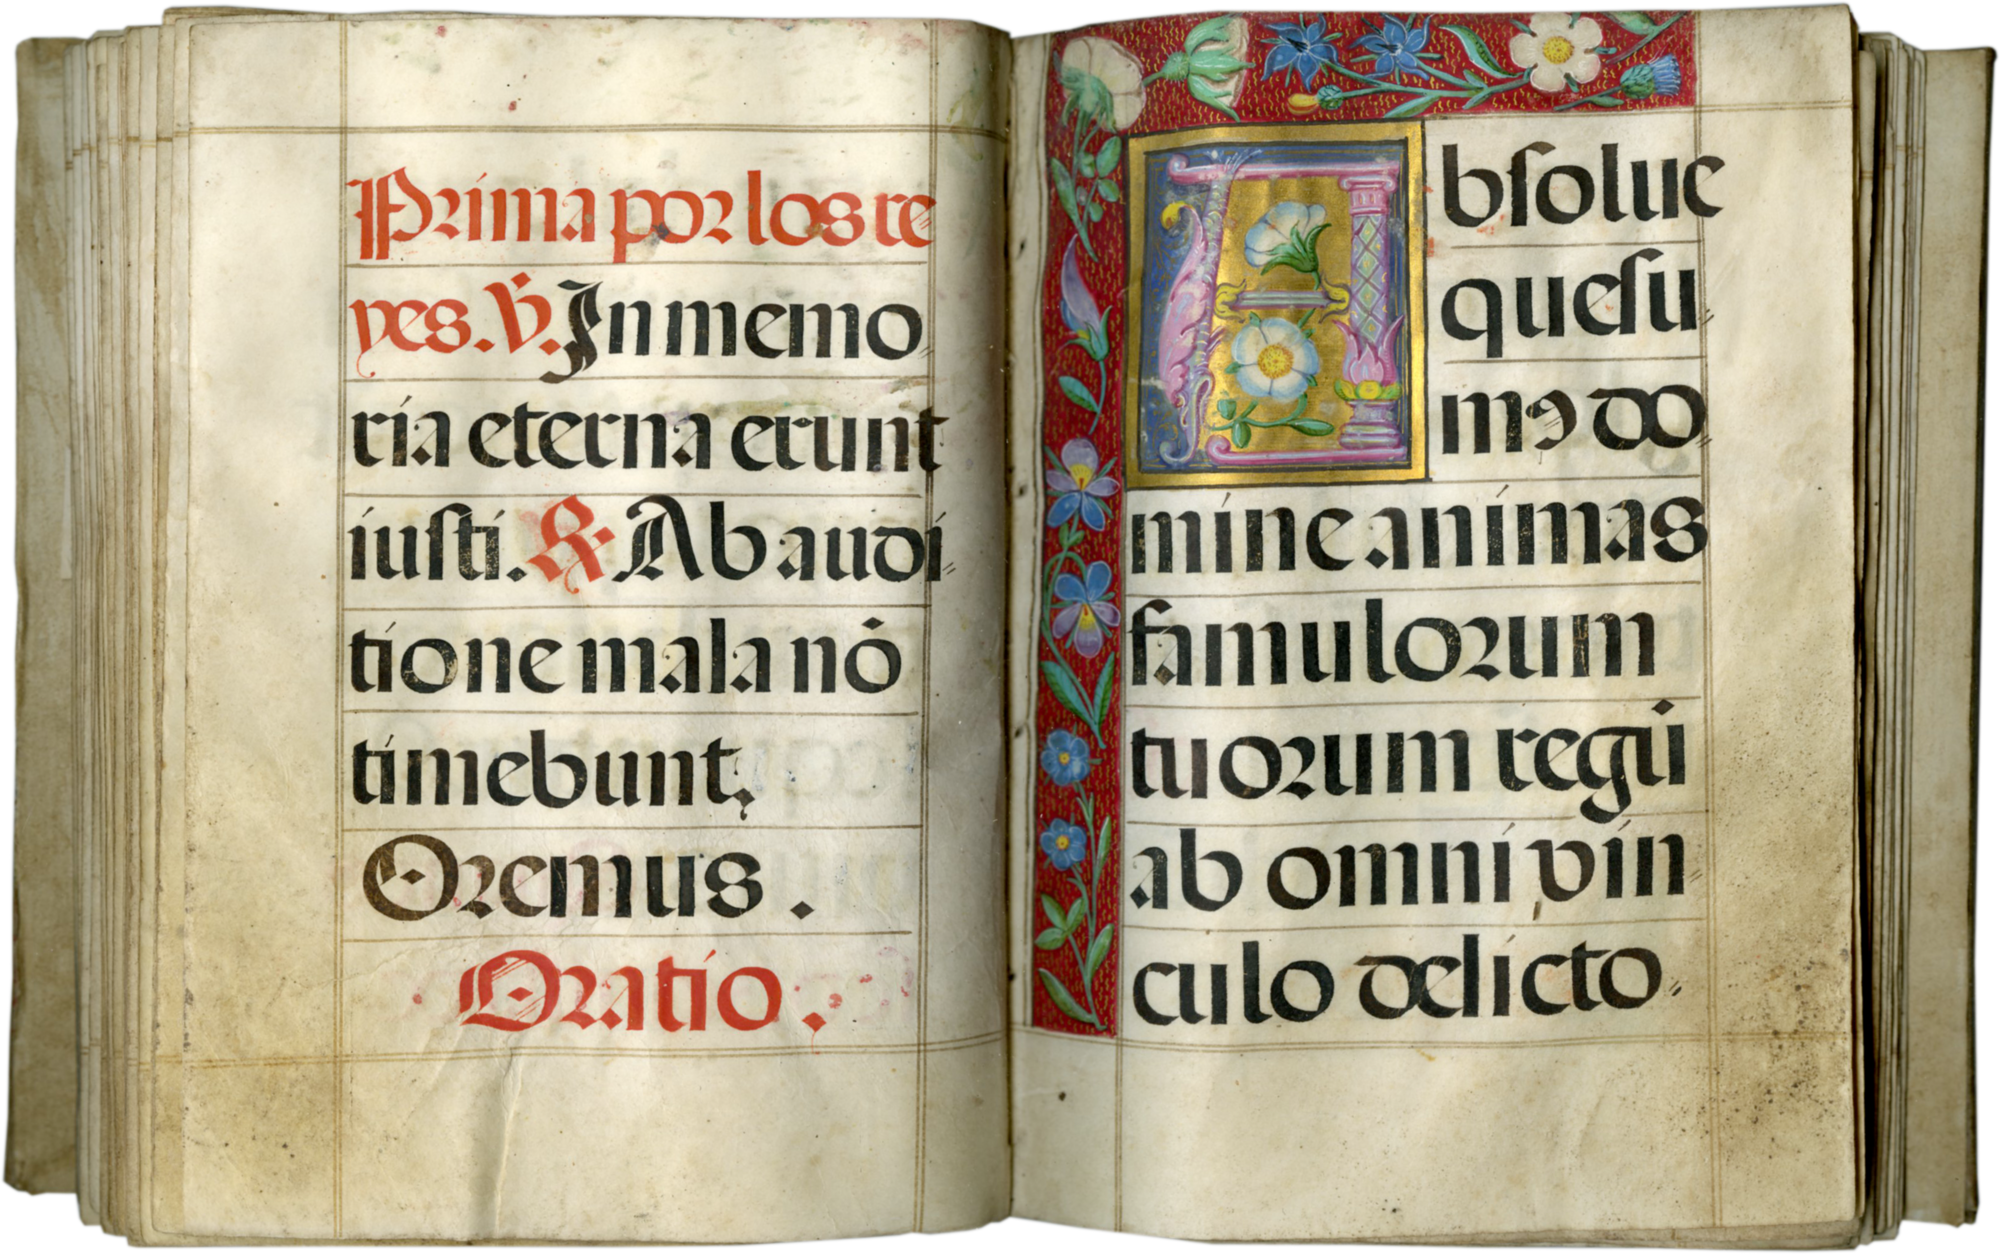 Prima por los re
yes. V̇. In memo
ria eterna erunt
iusti. ℟ Ab audi
tione mala nō
timebunt.
Oremus.
Oratio.
Absolue
quesu
mꝰ do
mine animas
famulorum
tuorum regū
ab omni vin
culo delicto